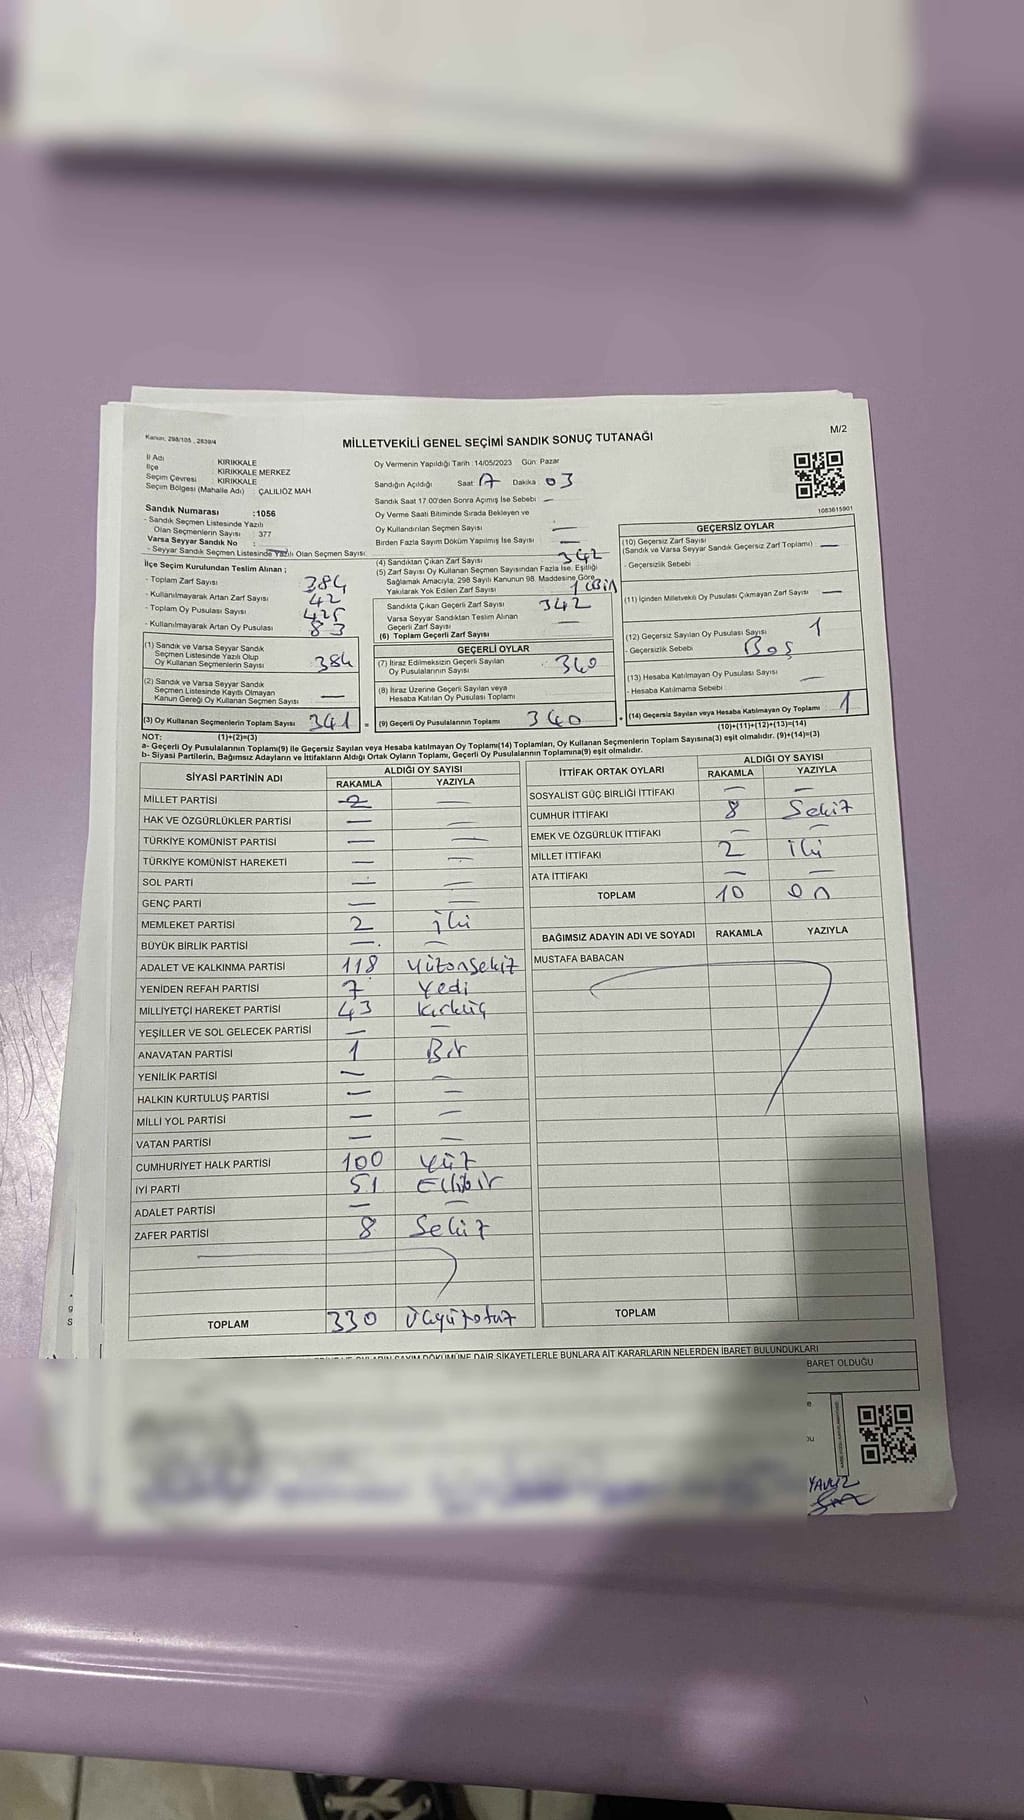 Kanun, 298/105 , 2839/4
M/2
MİLLETVEKİLİ GENEL SEÇİMİ SANDIK SONUÇ TUTANAĞI
İl Adı : KIRIKKALE
İlçe : KIRIKKALE MERKEZ
Seçim Çevresi : KIRIKKALE
Seçim Bölgesi (Mahalle Adı) : ÇALILIÖZ MAH
Sandık Numarası :1056
- Sandık Seçmen Listesinde Yazılı
Olan Seçmenlerin Sayısı : 377
Varsa Seyyar Sandık No :
- Seyyar Sandık Seçmen Listesinde Yazılı Olan Seçmen Sayısı:
İlçe Seçim Kurulundan Teslim Alınan ;
- Toplam Zarf Sayısı 384
- Kullanılmayarak Artan Zarf Sayısı 42
- Toplam Oy Pusulası Sayısı 425
- Kullanılmayarak Artan Oy Pusulası 83
(1) Sandık ve Varsa Seyyar Sandık
Seçmen Listesinde Yazılı Olup
Oy Kullanan Seçmenlerin Sayısı 384
(2) Sandık ve Varsa Seyyar Sandık
Seçmen Listesinde Kayıtlı Olmayan
Kanun Gereği Oy Kullanan Seçmen Sayısı —
(3) Oy Kullanan Seçmenlerin Toplam Sayısı 341 =
Oy Vermenin Yapıldığı Tarih :14/05/2023 Gün: Pazar
Sandığın Açıldığı Saat Dakika 03
Sandık Saat 17:00'den Sonra Açımış İse Sebebi —
Oy Verme Saati Bitiminde Sırada Bekleyen ve
Oy Kullandırılan Seçmen Sayısı —
Birden Fazla Sayım Döküm Yapılmış İse Sayısı —
(4) Sandıktan Çıkan Zarf Sayısı 342
(5) Zarf Sayısı Oy Kullanan Seçmen Sayısından Fazla İse, Eşitliği
Sağlamak Amacıyla, 298 Sayılı Kanunun 98. Maddesine Göre
Yakılarak Yok Edilen Zarf Sayısı 1 (Bir)
Sandıkta Çıkan Geçerli Zarf Sayısı 342
Varsa Seyyar Sandıktan Teslim Alınan
Geçerli Zarf Sayısı —
(6) Toplam Geçerli Zarf Sayısı
GEÇERLİ OYLAR
(7) İtiraz Edilmeksizin Geçerli Sayılan
Oy Pusulalarının Sayısı 340
(8) İtiraz Üzerine Geçerli Sayılan veya
Hesaba Katılan Oy Pusulası Toplamı
(9) Geçerli Oy Pusulalarının Toplamı 340 +
1083615901
GEÇERSİZ OYLAR
(10) Geçersiz Zarf Sayısı
(Sandık ve Varsa Seyyar Sandık Geçersiz Zarf Toplamı) —
- Geçersizlik Sebebi :
(11) İçinden Milletvekili Oy Pusulası Çıkmayan Zarf Sayısı —
(12) Geçersiz Sayılan Oy Pusulası Sayısı 1
- Geçersizlik Sebebi : Boş
(13) Hesaba Katılmayan Oy Pusulası Sayısı —
- Hesaba Katılmama Sebebi :
(14) Geçersiz Sayılan veya Hesaba Katılmayan Oy Toplamı 1
NOT: (1)+(2)=(3) (10)+(11)+(12)+(13)=(14)
a- Geçerli Oy Pusulalarının Toplamı(9) ile Geçersiz Sayılan veya Hesaba katılmayan Oy Toplamı(14) Toplamları, Oy Kullanan Seçmenlerin Toplam Sayısına(3) eşit olmalıdır. (9)+(14)=(3)
b- Siyasi Partilerin, Bağımsız Adayların ve İttifakların Aldığı Ortak Oyların Toplamı, Geçerli Oy Pusulalarının Toplamına(9) eşit olmalıdır.
SİYASİ PARTİNİN ADI ALDIĞI OY SAYISI
RAKAMLA YAZIYLA
MİLLET PARTİSİ —
HAK VE ÖZGÜRLÜKLER PARTİSİ — —
TÜRKİYE KOMÜNİST PARTİSİ — —
TÜRKİYE KOMÜNİST HAREKETİ — —
SOL PARTİ — —
GENÇ PARTİ — —
MEMLEKET PARTİSİ 2 iki
BÜYÜK BİRLİK PARTİSİ — —
ADALET VE KALKINMA PARTİSİ 118 Yüzonsekiz
YENİDEN REFAH PARTİSİ 7 Yedi
MİLLİYETÇİ HAREKET PARTİSİ 43 Kırküç
YEŞİLLER VE SOL GELECEK PARTİSİ — —
ANAVATAN PARTİSİ 1 Bir
YENİLİK PARTİSİ — —
HALKIN KURTULUŞ PARTİSİ — —
MİLLİ YOL PARTİSİ — —
VATAN PARTİSİ — —
CUMHURİYET HALK PARTİSİ 100 Yüz
İYİ PARTİ 51 Ellibir
ADALET PARTİSİ — —
ZAFER PARTİSİ 8 Sekiz
TOPLAM 330 Üçyüzotuz
İTTİFAK ORTAK OYLARI ALDIĞI OY SAYISI
RAKAMLA YAZIYLA
SOSYALİST GÜÇ BİRLİĞİ İTTİFAKI — —
CUMHUR İTTİFAKI 8 Sekiz
EMEK VE ÖZGÜRLÜK İTTİFAKI — —
MİLLET İTTİFAKI 2 iki
ATA İTTİFAKI — —
TOPLAM 10 on
BAĞIMSIZ ADAYIN ADI VE SOYADI RAKAMLA YAZIYLA
MUSTAFA BABACAN
TOPLAM
DÖKÜMÜNE DAİR ŞİKAYETLERLE BUNLARA AİT KARARLARIN NELERDEN İBARET BULUNDUKLARI
BARET OLDUĞU
YAVUZ